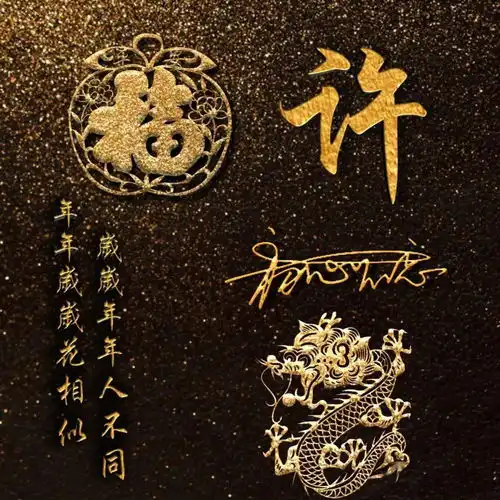 福
许
年年歲歲花相似
歲歲年年人不同